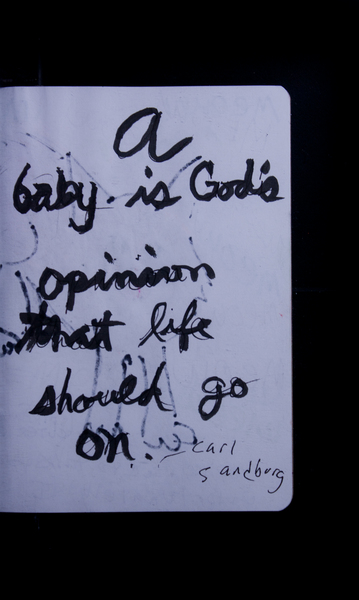 a
baby is God's
opinion
that life
should go
on. - Carl
Sandburg